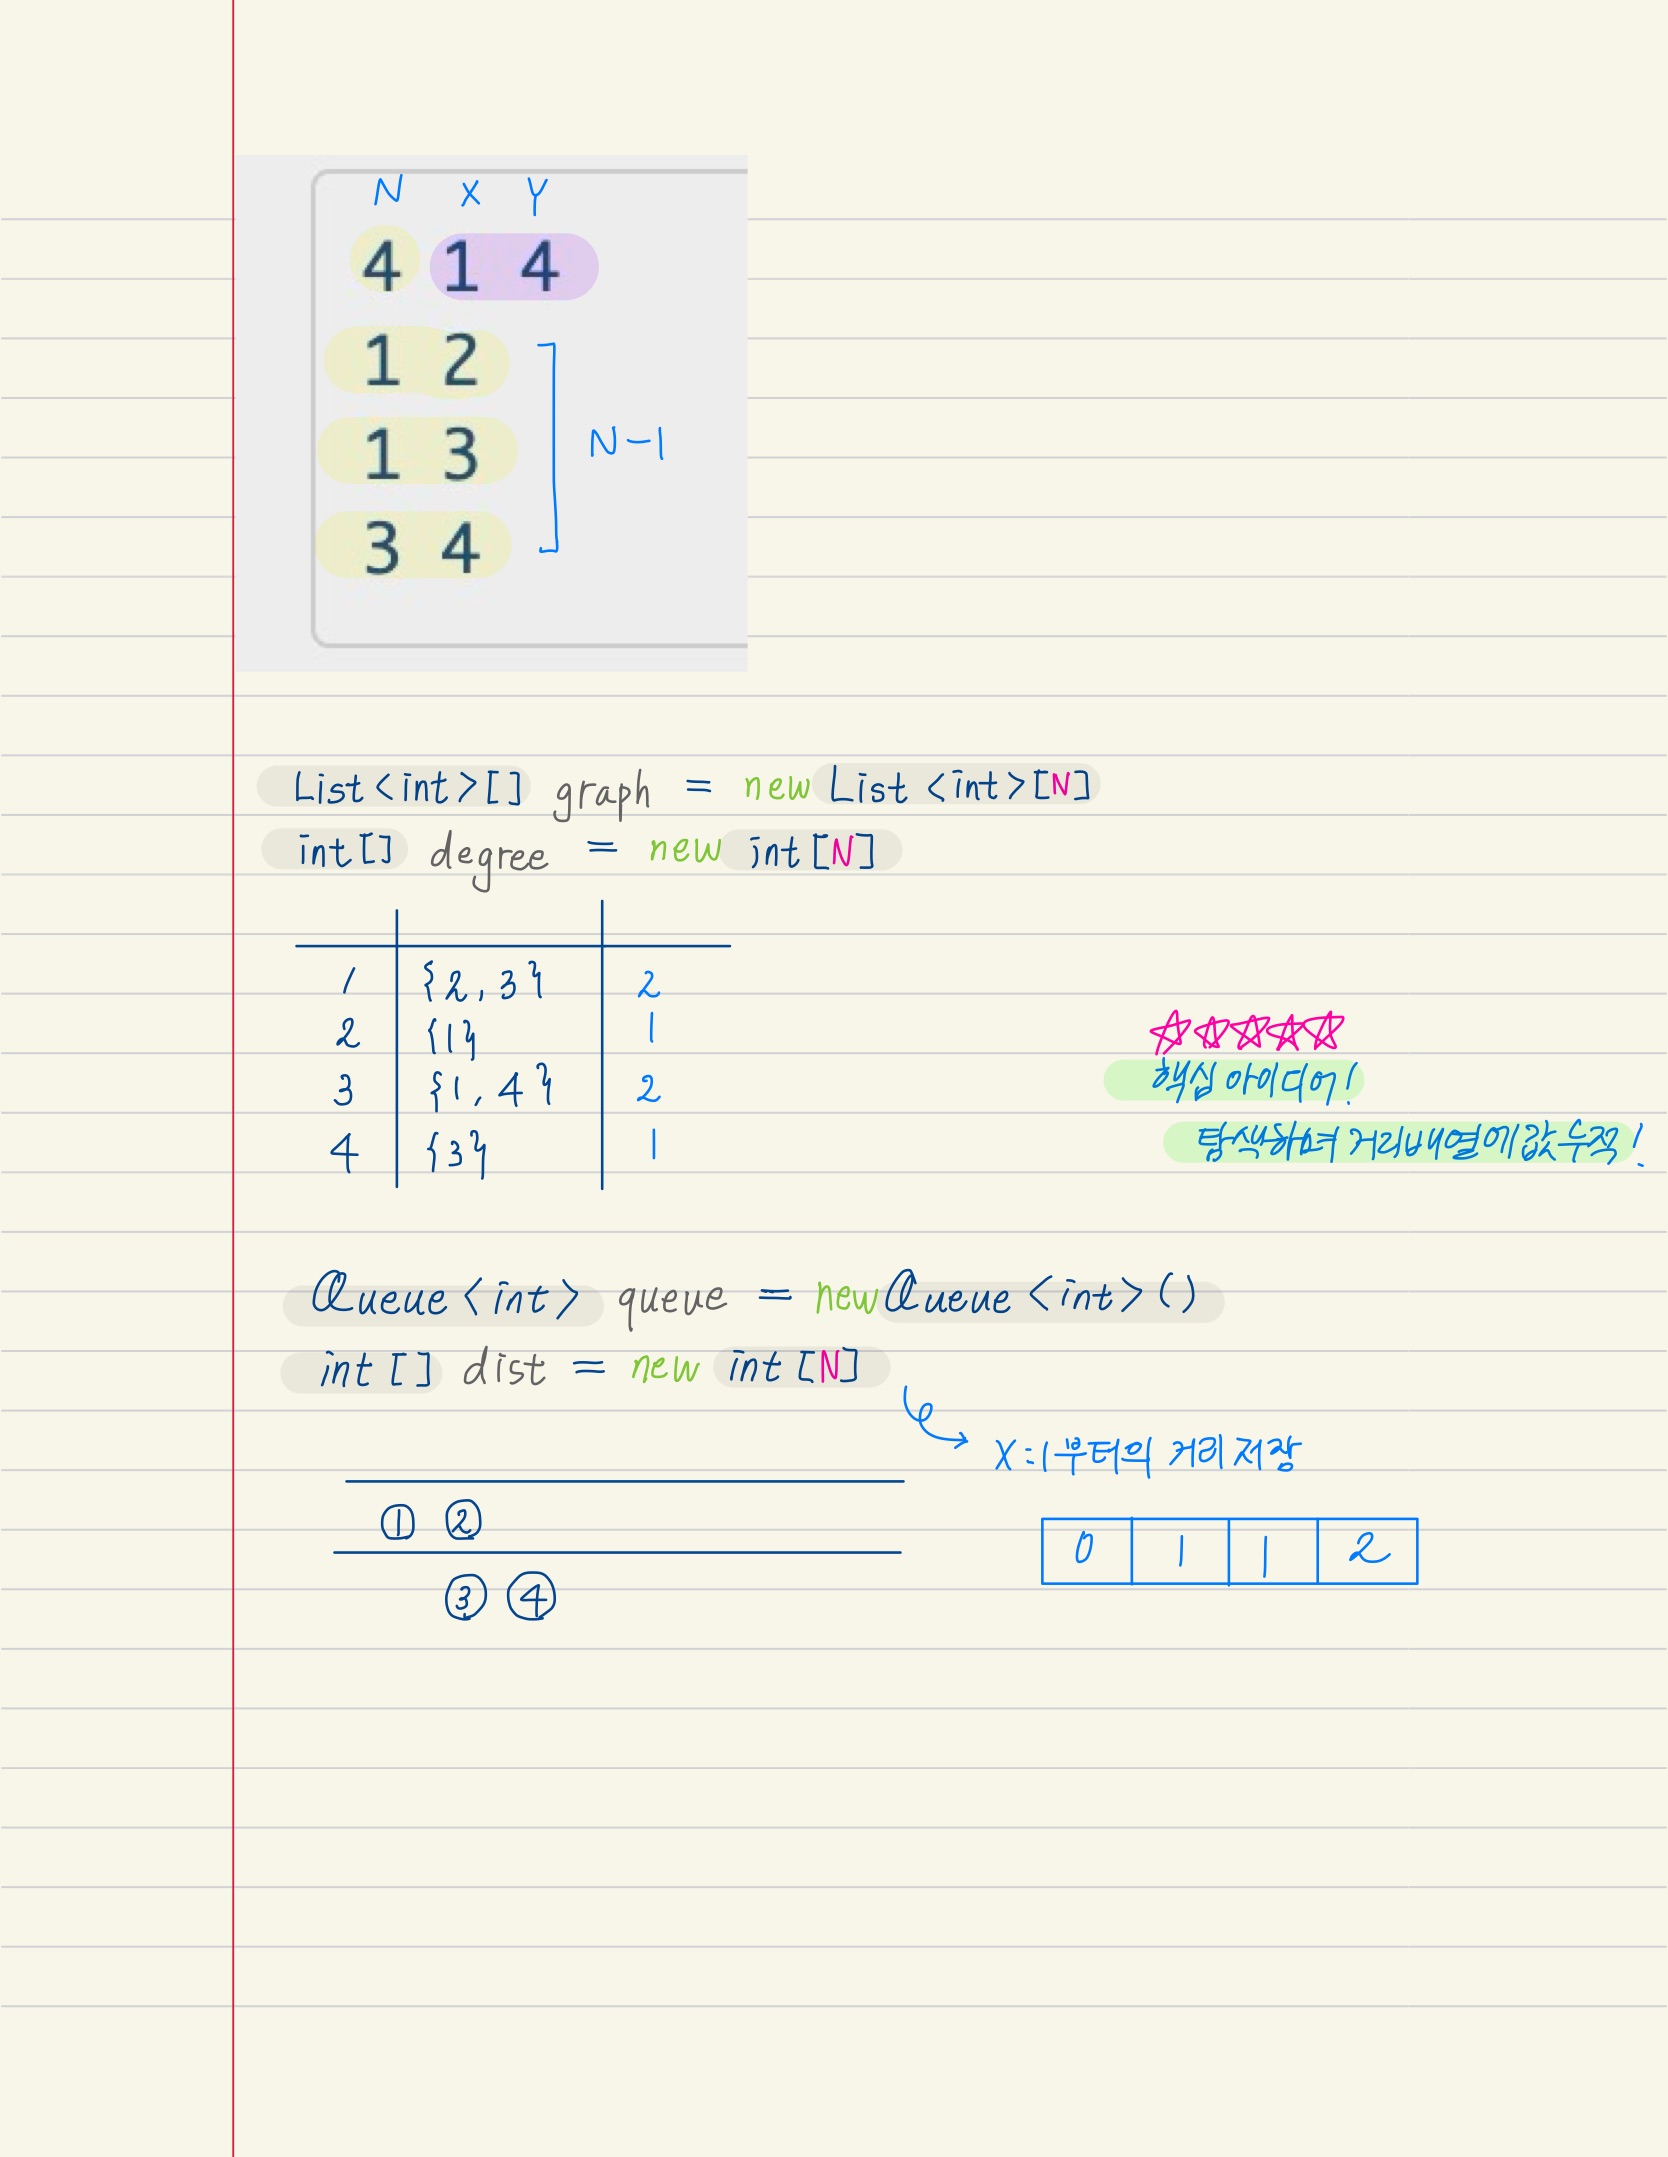 N X Y
4 1 4
1 2
1 3
3 4
N-1
List<int>[] graph = new List<int>[N]
int[] degree = new int[N]
1 {2, 3} 2
2 {1} 1
3 {1, 4} 2
4 {3} 1
☆☆☆☆☆
핵심 아이디어!
탐색하며 거리배열에 값 누적!
Queue<int> queue = new Queue<int>()
int[] dist = new int[N]
X=1부터의 거리 저장
① ②
③ ④
0 1 1 2